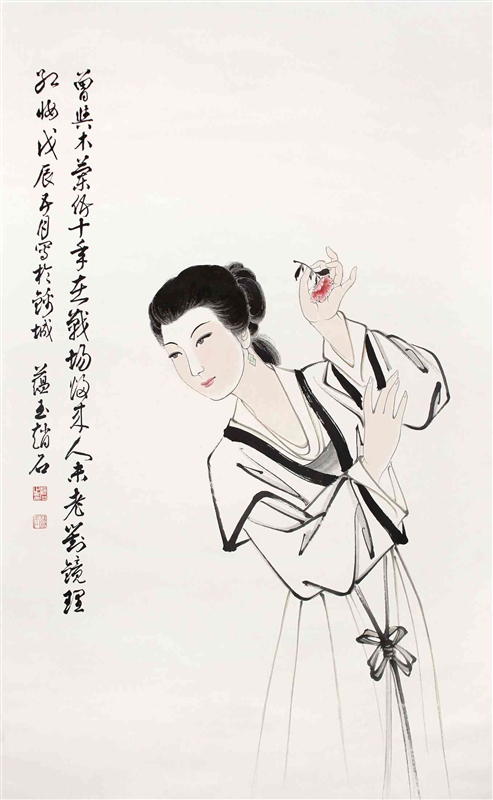 曾與木蘭伍十年在戰場歸來人未老對鏡理
紅妝戊辰五月寫於錦城 蘊玉趙石